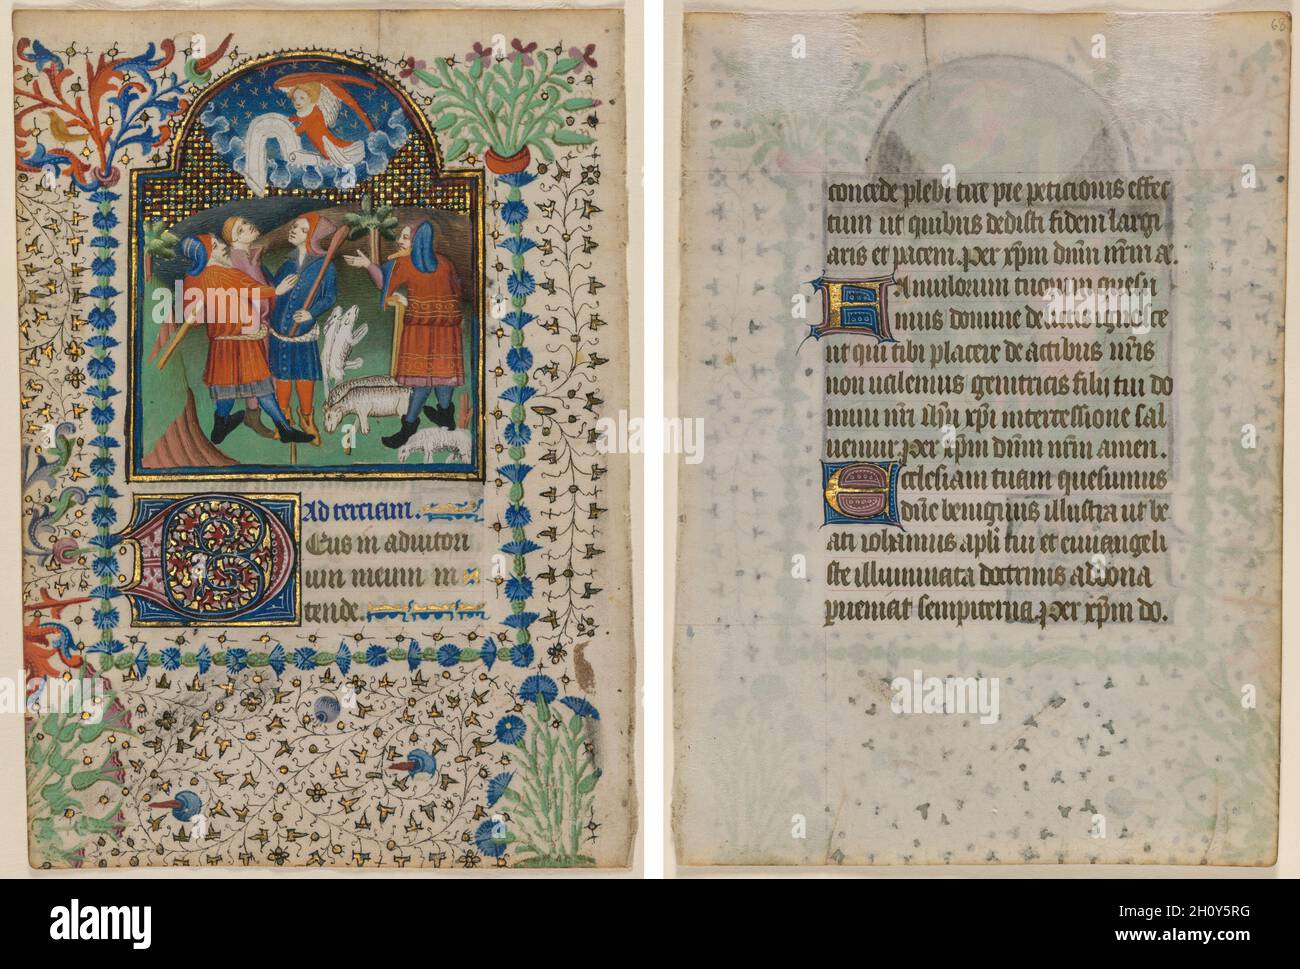 Ad terciam.
Eus in adiutori
um meum in
tende.
68
concede plebi tue pie peticionis effec
tum ut quibus dedisti fidem largi
aris et pacem. Per xpm dnm nrm Æ.
Famulorum tuorum quesu
mus domine delictis ignosce
ut qui tibi placere de actibus nris
non valemus genitricis filij tui do
mini nri ihu xpi intercessione sal
vemur. Per xpm dnm nrm amen.
Ecclesiam tuam quesumus
dne benignus illustra ut be
ati iohannis apli tui et euuangeli
ste illuminata doctrinis ad dona
perveniat sempiterna. Per xpm do.
alamy
Image ID: 2H0Y5RG
www.alamy.com